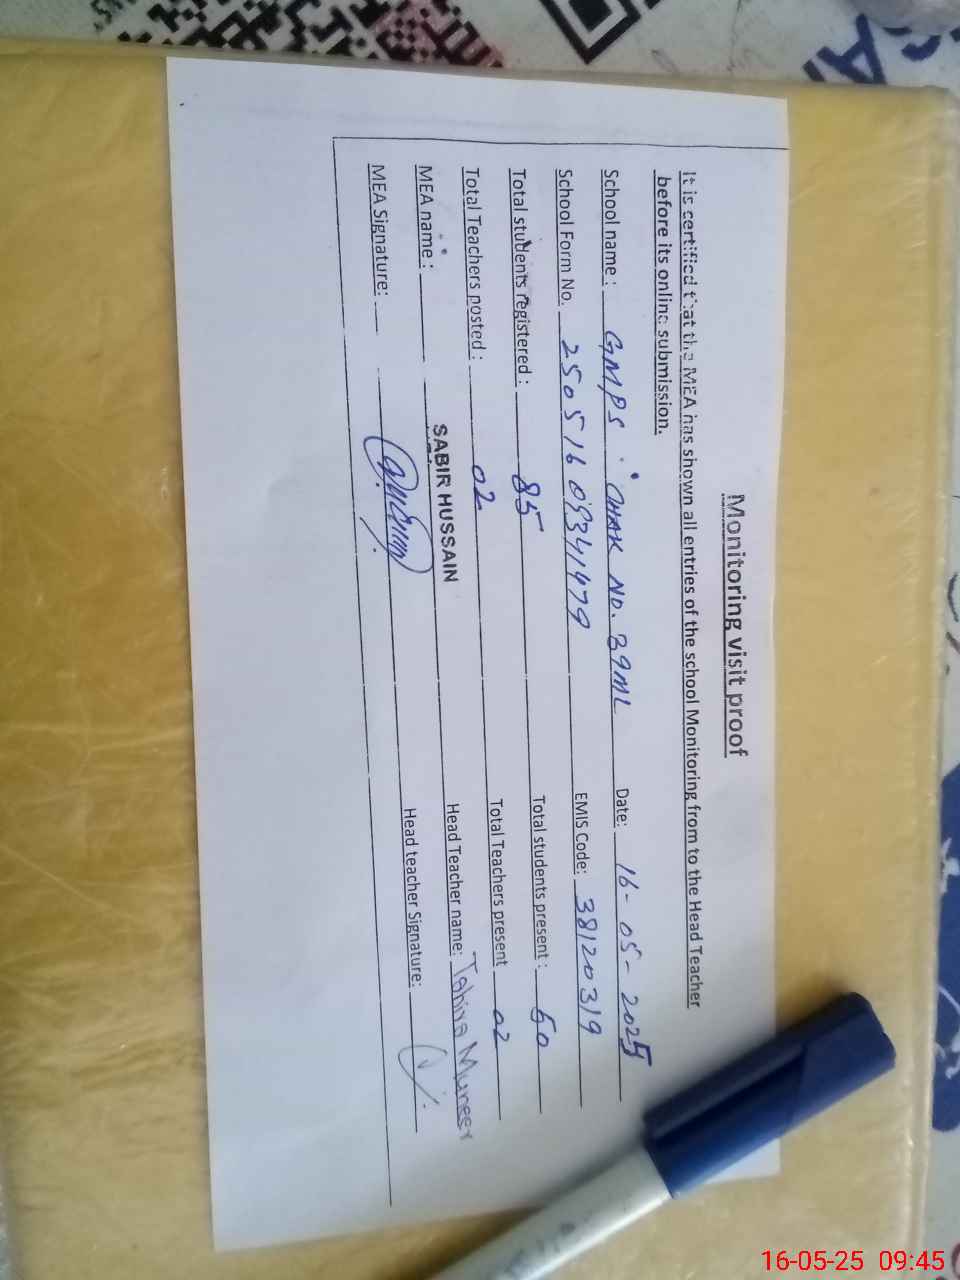 Monitoring visit proof
It is certified that the MEA has shown all entries of the school Monitoring from to the Head Teacher
before its online submission.
School name : GMPS CHAK No. 39ML Date: 16-05-2025
School Form No. 25051609341479 EMIS Code: 38120319
Total students registered : 85 Total students present : 60
Total Teachers posted : 02 Total Teachers present 02
MEA name : SABIR HUSSAIN Head Teacher name: Tahira Muneer
MEA Signature: Head teacher Signature:
16-05-25 09:45